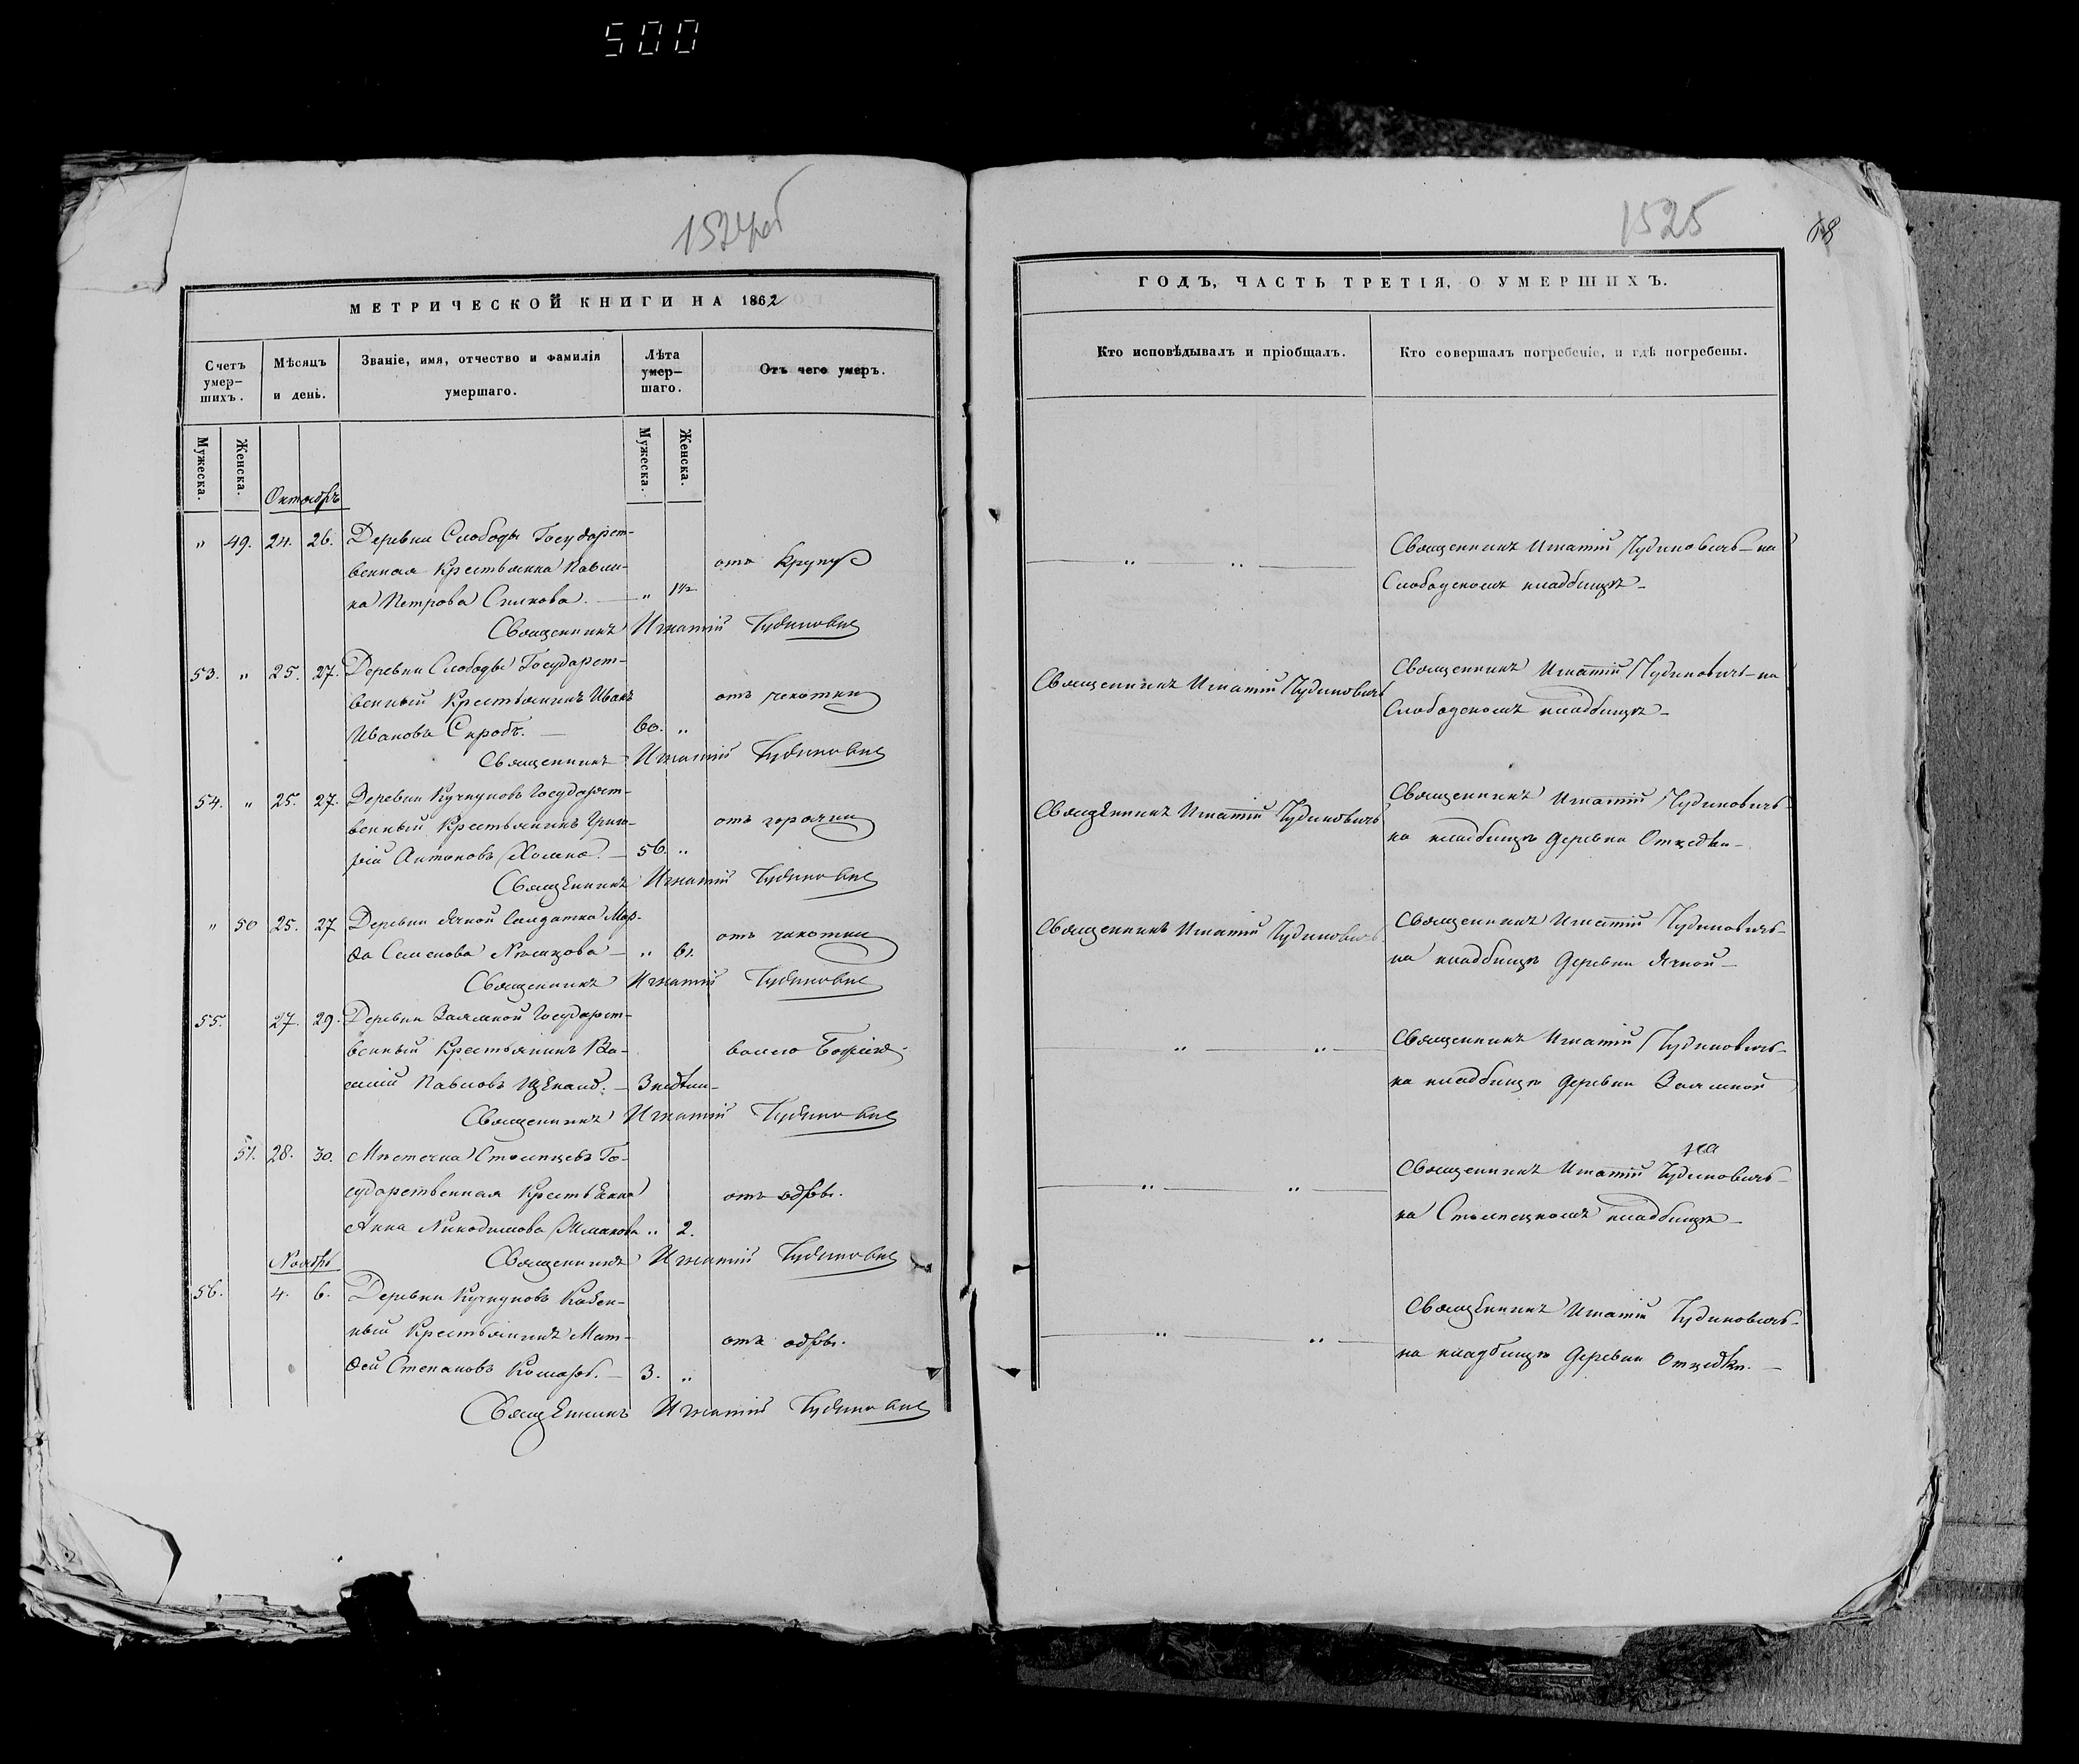 500
1524 об
МЕТРИЧЕСКОЙ КНИГИ НА 1862
Счетъ умер-шихъ.
Мѣсяцъ и день.
Званіе, имя, отчество и фамилія умершаго.
Лѣта умер-шаго.
Отъ чего умеръ.
Мужеска. Женска. Мужеска. Женска.
Октябрь
" 49. 24. 26. Деревни Слободы Государст-
венная Крестьянка Павли- отъ Крупу
на Петрова " 1½
Священникъ Игнатій Чудиновичъ
53. " 25. 27. Деревни Слободы Государст-
венный Крестьянинъ Иванъ отъ чахотки
Ивановъ Скробъ. — 60. "
Священникъ Игнатій Чудиновичъ
54. " 25. 27. Деревни Кучкуновъ Государст-
венный Крестьянинъ Григо- отъ горячки
рій Антоновъ — 56. "
Священникъ Игнатій Чудиновичъ
" 50 25. 27 Деревни Ячной Солдатка Мар- отъ чахотки
Семенова — " 61.
Священникъ Игнатій Чудиновичъ
55. 27. 29. Деревни Заямной Государст-
венный Крестьянинъ Ва- волею Божіею.
силій Павловъ — 3 недѣли
Священникъ Игнатій Чудиновичъ
51. 28. 30. Мѣстечка Столпцевъ Го-
сударственная Крестьянка отъ одры.
Анна Никодимова " 2.
Священникъ Игнатій Чудиновичъ
Ноябрь
56. 4. 6. Деревни Кучкуновъ Казен-
ный Крестьянинъ Мат- отъ одры.
ѳей Степановъ Комаръ. — 3. "
Священникъ Игнатій Чудиновичъ
1525
68
ГОДЪ, ЧАСТЬ ТРЕТІЯ, О УМЕРШИХЪ.
Кто исповѣдывалъ и пріобщалъ.
Кто совершалъ погребеніе, и гдѣ погребены.
" " Священникъ Игнатій Чудиновичъ — на
Слободскомъ кладбищѣ —
Священникъ Игнатій Чудиновичъ
Священникъ Игнатій Чудиновичъ — на
Слободскомъ кладбищѣ —
Священникъ Игнатій Чудиновичъ
Священникъ Игнатій Чудиновичъ —
на кладбищѣ деревни Отцедки —
Священникъ Игнатій Чудиновичъ
Священникъ Игнатій Чудиновичъ —
на кладбищѣ деревни Ячной —
" " Священникъ Игнатій Чудиновичъ —
на кладбищѣ деревни Заямной
" " Священникъ Игнатій Чудиновичъ —
на Столпецкомъ кладбищѣ —
" " Священникъ Игнатій Чудиновичъ —
на кладбищѣ деревни Отцедки. —